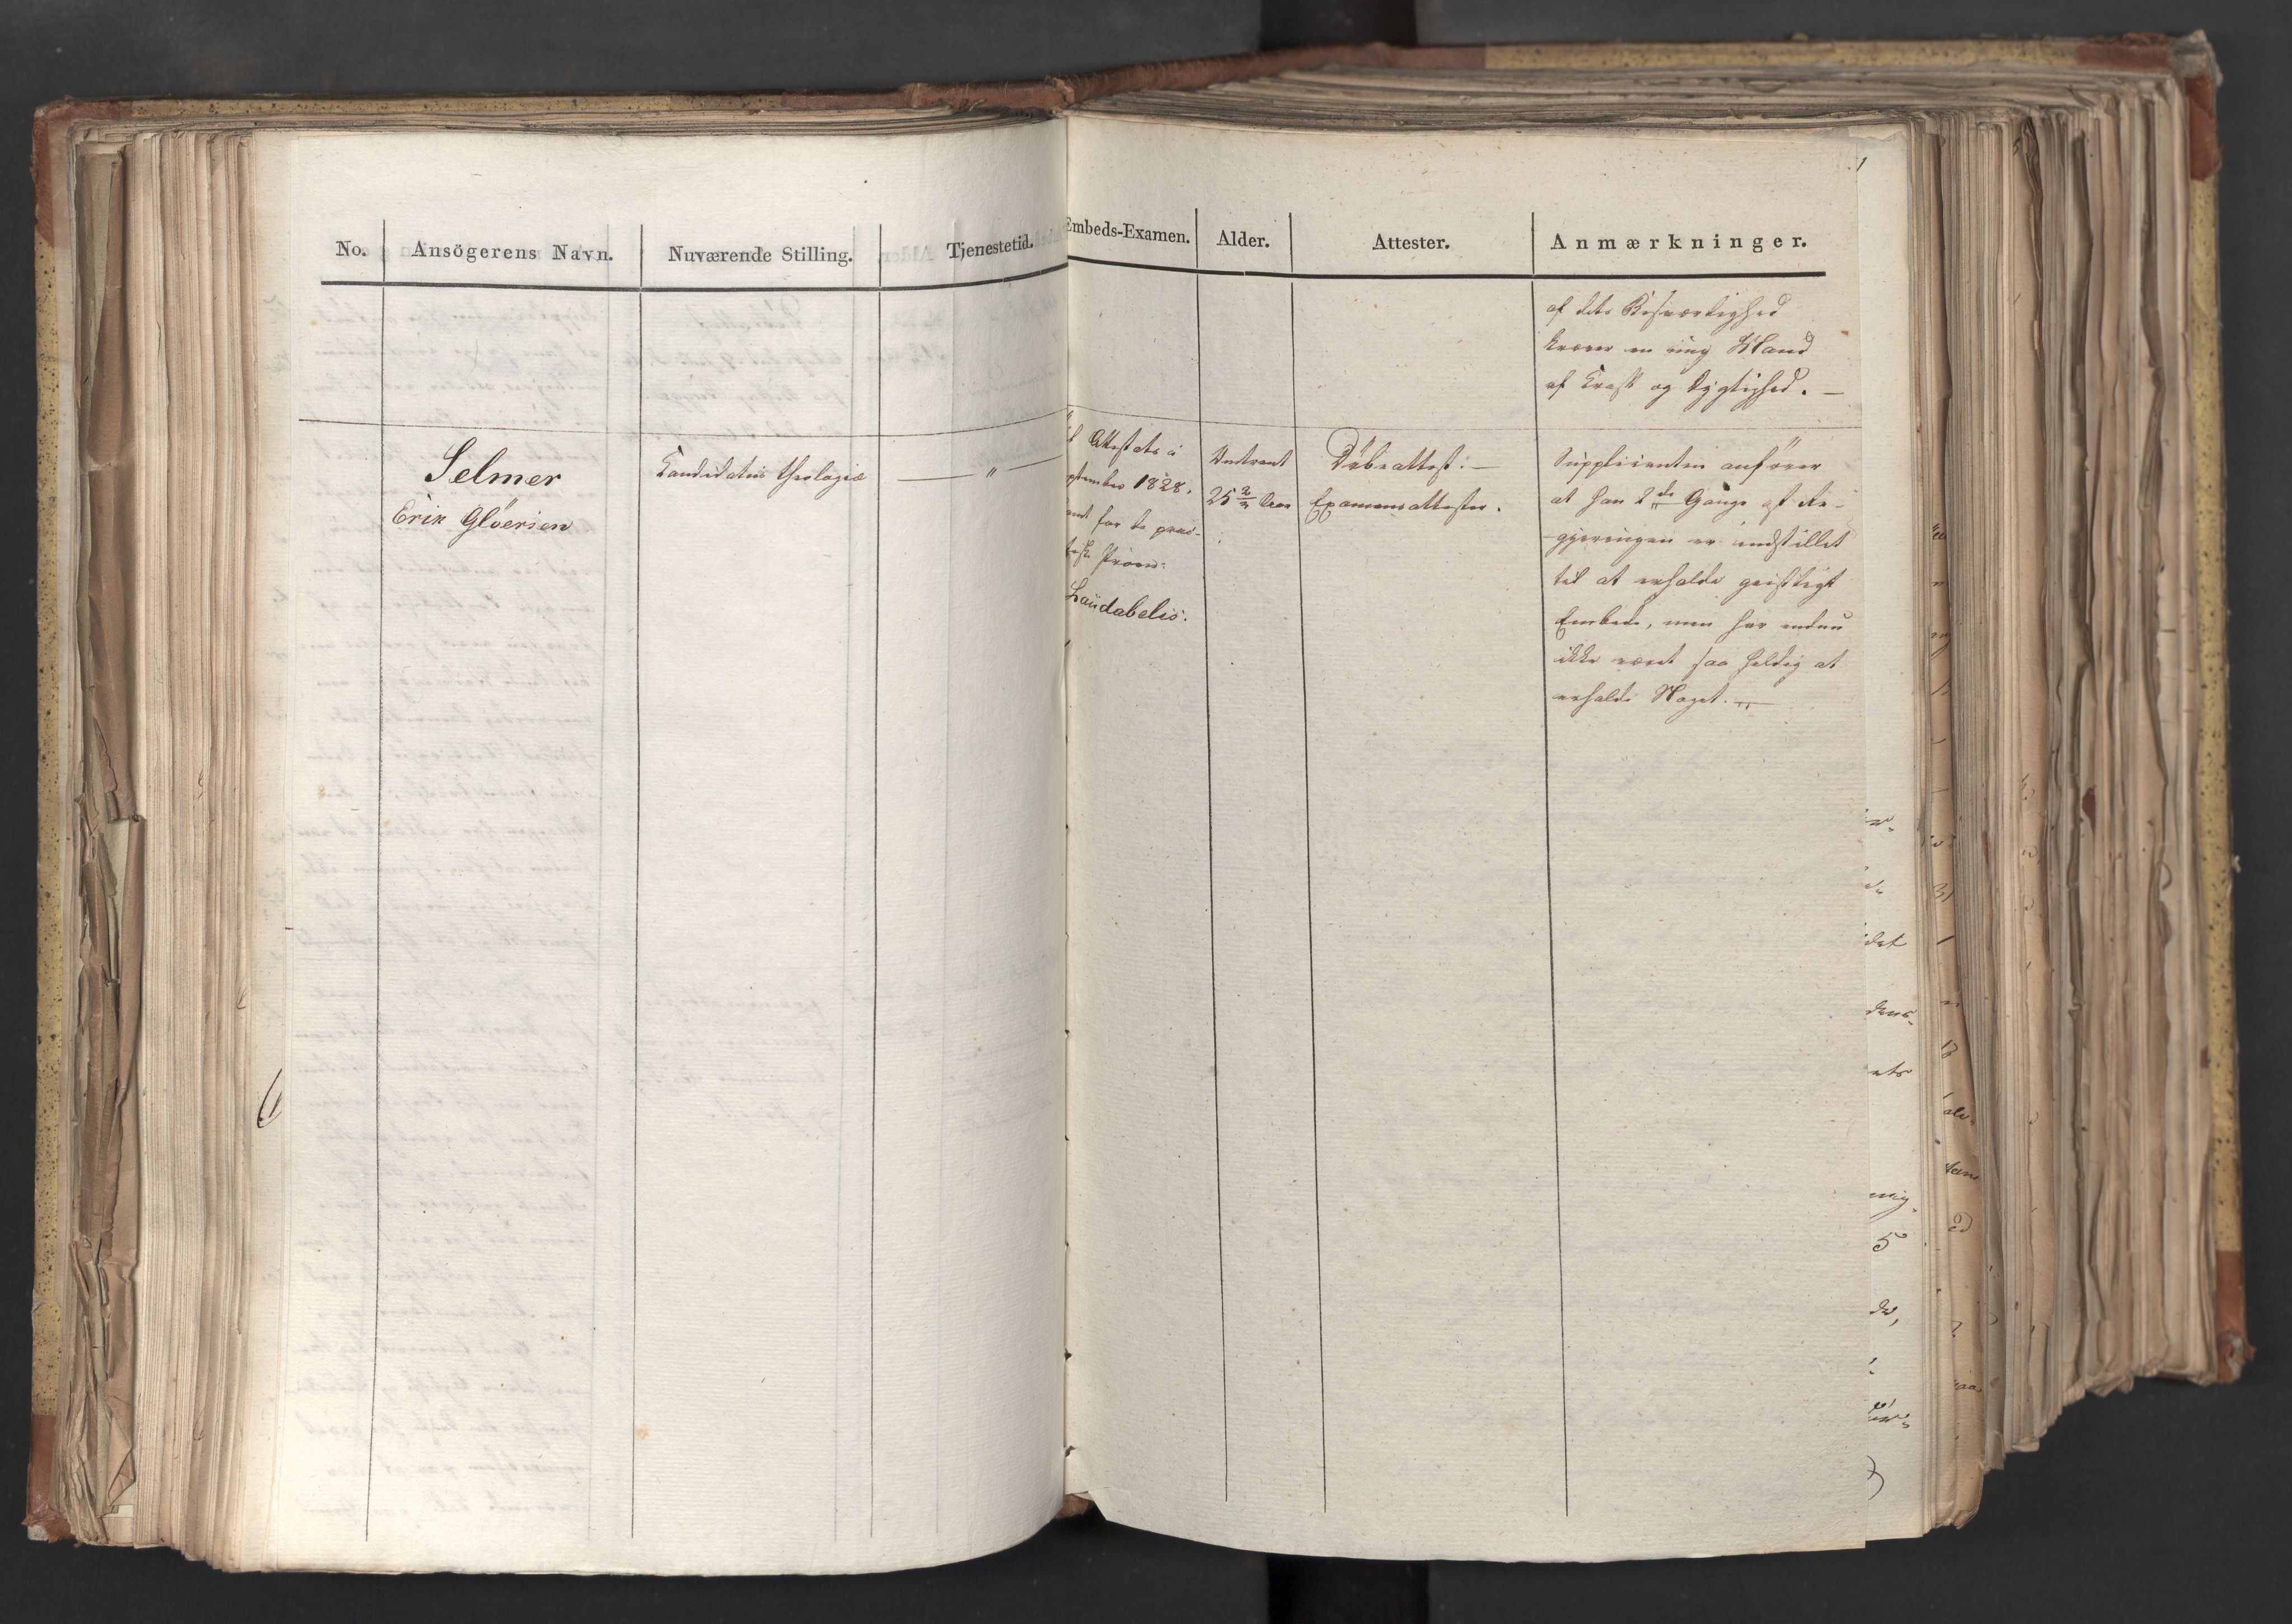 No.
Ansögerens Navn.
Nuværende Stilling.
Tjenestetid.
Embeds-Examen.
Alder.
Attester.
Anmærkninger.
af dets Besværlighed
kræver en ung Mand
af Kraft og Dygtighed. —
Selmer
Erik Glöersen
Kandidatus theologiæ
— " —
Attestats i
ptember 1828,
samt har de prac-
tisk Prøve:
Laudabelis.
Omtrent
25 2/3 Aar
Döbeattest: —
Examensattester.
Supplicanten anfører
at han 2de Gange af Re-
gjeringen er indstillet
til at erholde geistligt
Embede, men har endnu
ikke været saa heldig at
erholde Noget. —